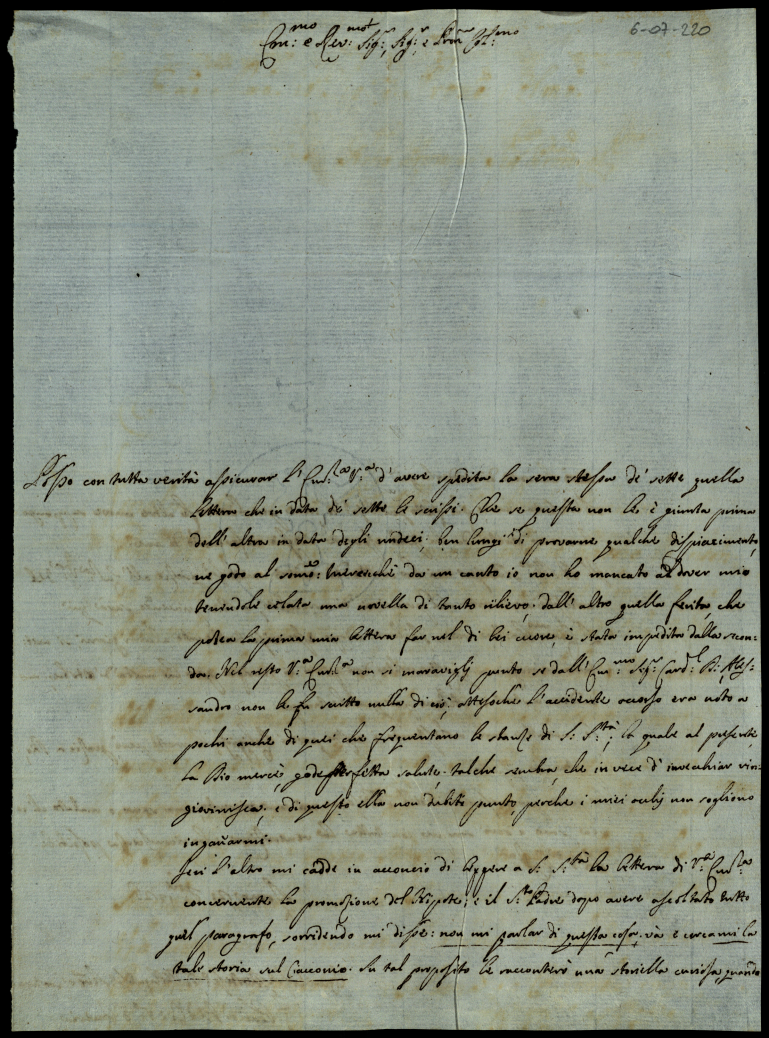 6-07-220
Em:mo e Rev:mo Sig:r, Sig:r e Pron Col:mo
Posso con tutta verità assicurar l'Em:za V:a d'avere spedita la sera stessa de' sette quella
lettera che in data de' sette le scrissi. Che se questa non le è giunta prima
dell'altra in data degli undeci, ben lungi di provarne qualche dispiacimento,
ne godo al sommo: mercecchè da un canto io non ho mancato al dover mio
tenendole celata una novella di tanto rilievo, dall'altro quella ferita, che
potea la prima mia lettera far nel di lei cuore, è stata impedita dalla secon-
da. Nel resto V:a Em:za non si maravigli punto se dall'Em:mo Sig:r Card:l Alles-
sandro non le fu scritto nulla di ciò, attesochè l'accidente occorso era noto a
pochi anche di quei che frequentano le stanze di S: S:tà, la quale al presente,
la Dio mercè, gode perfetta salute, talche sembra, che in vece d'invecchiar rin-
giovinisca, e di questo ella non dubiti punto, perche i miei occhj non sogliono
ingañarmi.
Jeri l'altro mi cadde in acconcio di leggere a S: S:tà la lettera di V:a Em:za
concernente la promozione del Nipote; e il S:to Padre dopo avere ascoltato tutto
quel paragrafo, sorridendo mi disse: non mi parlar di questa cosa, và e cercami la
tale storia sul Ciacconio. Su tal proposito le racconterò una storiella curiosa, quando